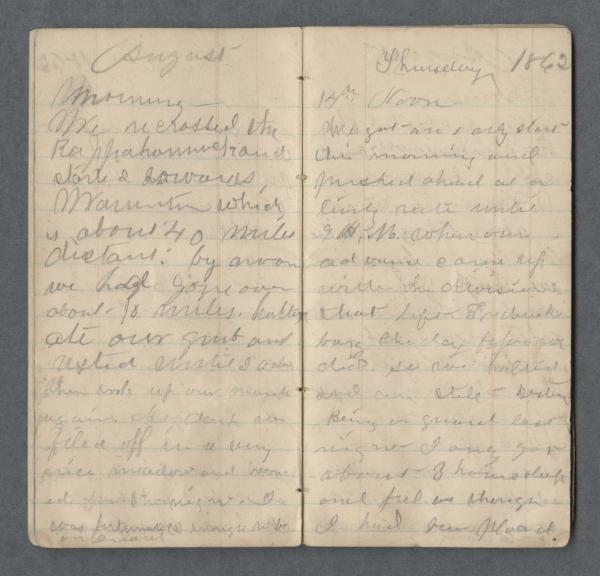 August
Morning —
We recrossed the
Rappahannock and
started towards
Warrenton which
is about 40 miles
distant. by noon
we had gone over
about 10 miles. halted
ate our grub and
rested until 3 oclock
then took up our march
again. At dark we
filed off in a very
nice meadow and bivouac
ed for the night. I
was fortunate enough to be
on Guard
Thursday 1862
14th Noon
We got an early start
this morning and
pushed ahead at a
lively rate until
9 A. M. when our
advance came up
with the division
that left Fredericks
burg the day before we
did so we halted
and are still
Being on guard last
night I only got
about 3 hours sleep
and feel as though
I had been